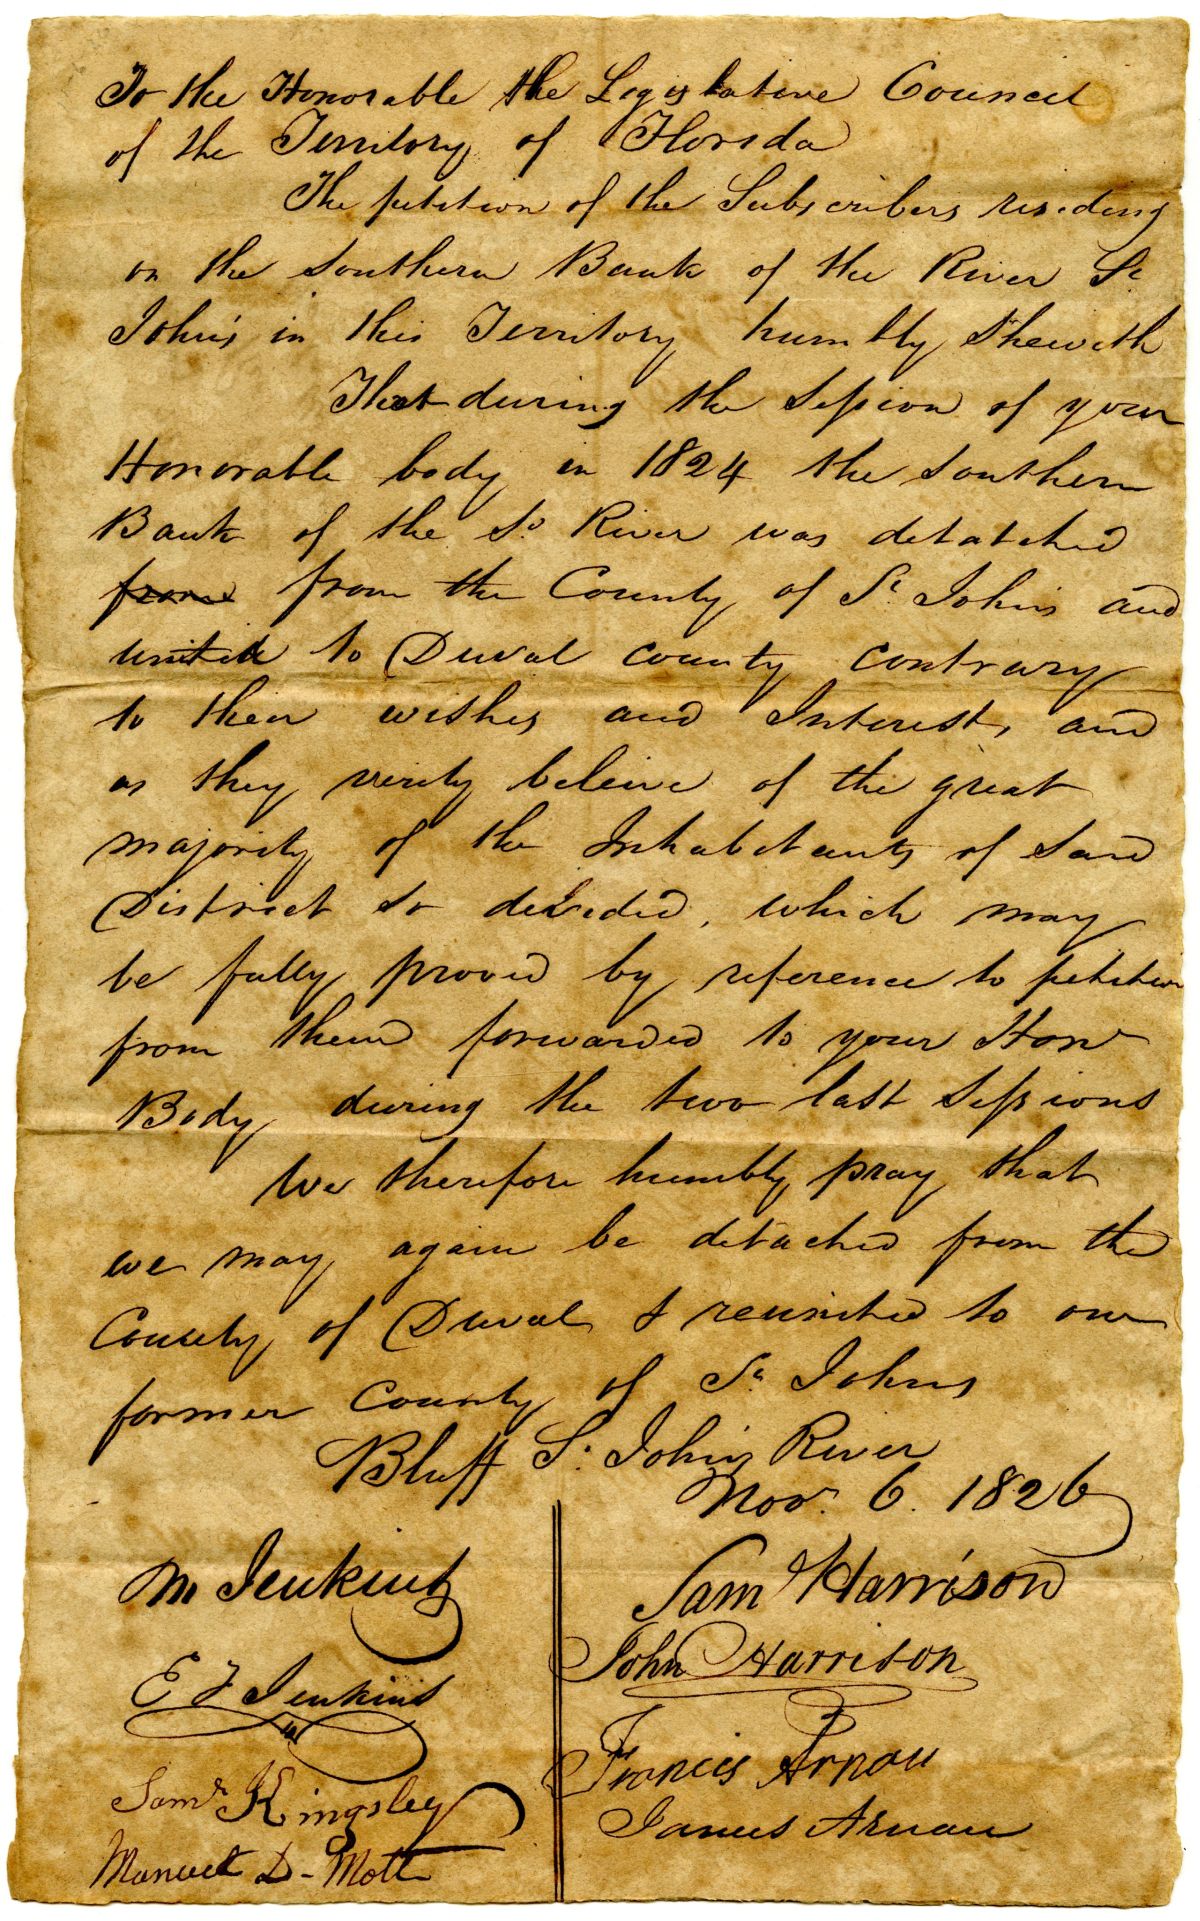 To the Honorable the Legislative Council
of the Territory of Florida
The petition of the Subscribers residing
on the Southern Bank of the River St
John's in this Territory humbly Sheweth
That during the Session of your
Honorable body in 1824 the Southern
Bank of the Sd River was detatched
from from the County of St Johns and
united to Duval county contrary
to their wishes and Interests, and
as they verily beleive of the great
majority of the Inhabitants of said
District so devided, which may
be fully proved by reference to petition
from them forwarded to your Honr
Body during the two last Sessions
We therefore humbly pray that
we may again be detached from the
County of Duval & reunited to our
former County of St Johns
Bluff St Johns River
Novr 6. 1826
M Jenkins
E F Jenkins
Saml Kingsley
Manuel D- Mott
Saml Harrison
John Harrison
Francis Arnau
James Arnau